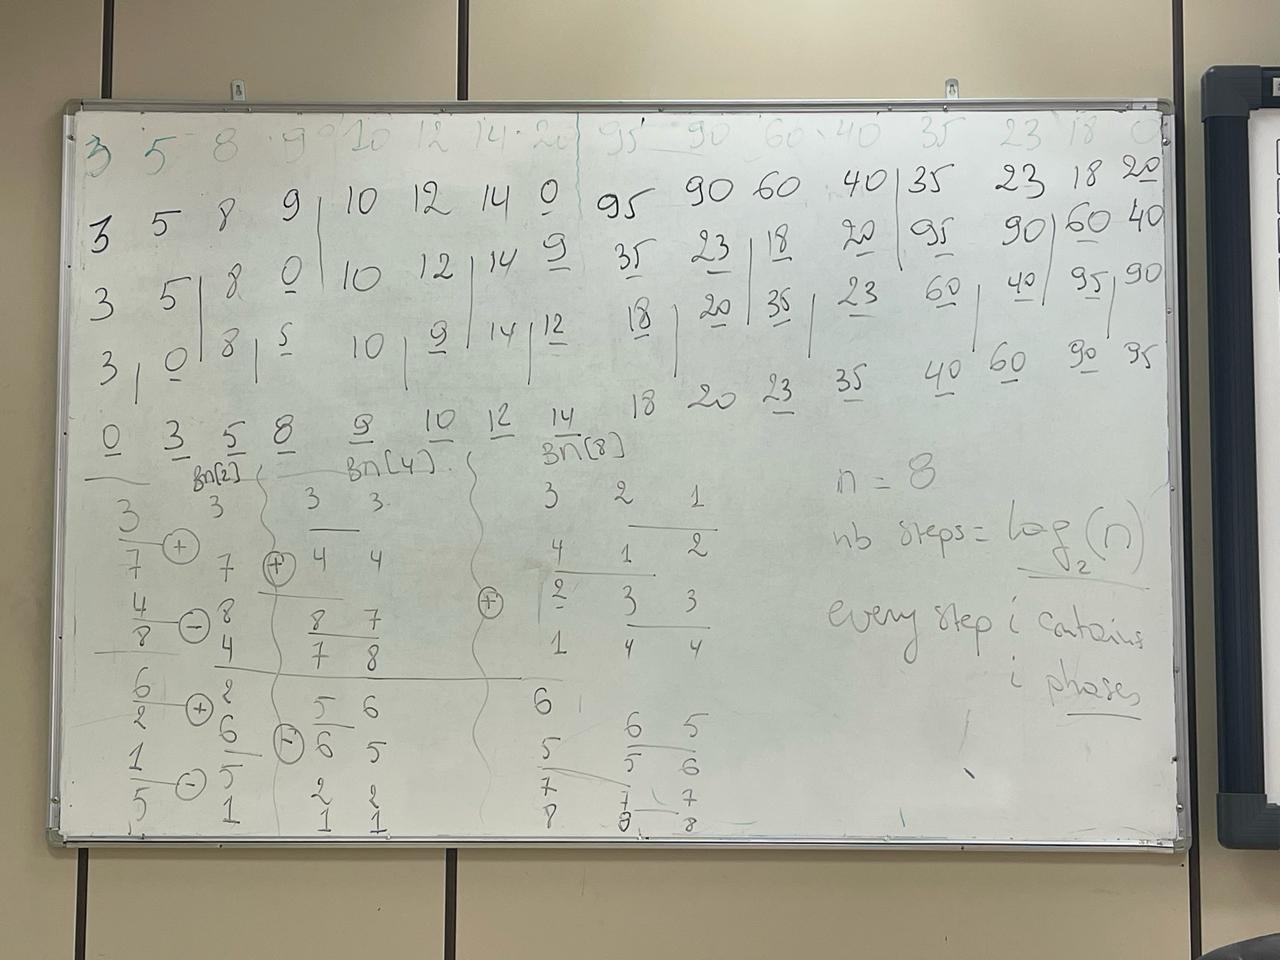 3 5 8 9 10 12 14 20 95 90 60 40 35 23 18 0
3 5 8 9 10 12 14 0 95 90 60 40 35 23 18 20
3 5 8 0 10 12 14 9 35 23 18 20 95 90 60 40
3 0 8 5 10 9 14 12 18 20 35 23 60 40 95 90
0 3 5 8 9 10 12 14 18 20 23 35 40 60 90 95
Bn[2] Bn[4] Bn[8]
3 3 3 3 3 2 1
7 + 7 + 4 4 4 1 2
4 8 8 7 + 2 3 3
8 - 4 7 8 1 4 4
6 2 5 6 6 6 5
2 + 6 - 6 5 5 5 6
1 5 2 2 7 7 7
5 - 1 1 1 8 8 8
n = 8
nb steps = log2(n)
every step i contains
i phases